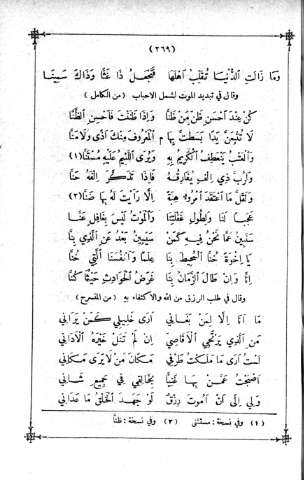 (٢٦٩)
وَمَا زَالَتِ الدُّنْيَا تُقَلِّبُ أَهْلَهَا فَتَجْعَلُ ذَا غَثًّا وَذَاكَ سَمِينَا
وقال في تبديد الموت لشمل الاحباب (من الكامل)
كُنْ عِنْدَ أَحْسَنِ ظَنِّ مَنْ ظَنَّا وَإِذَا ظَنَنْتَ فَأَحْسِنِ الظَّنَّا
لَا تُتْبِعَنَّ يَدًا بَسَطْتَ بِهَا م الْمَعْرُوفَ مِنْكَ أَذًى وَلَا مَنَّا
وَالْعَتْبُ يَنْعَطِفُ الْكَرِيمُ بِهِ وَيُرَى اللَّئِيمُ عَلَيْهِ مُسْتَنَّا (١)
وَلَرُبَّ ذِي إِلْفٍ يُفَارِقُهُ فَإِذَا تَذَكَّرَ إِلْفَهُ حَنَّا
وَلَقَلَّ مَا اعْتَقَدَ امْرُؤٌ هِبَةً إِلَّا رَأَيْتَ لَهُ بِهَا ضَنَّا (٢)
عَجَبًا لَنَا وَلِطُولِ غَفْلَتِنَا وَالْمَوْتُ لَيْسَ بِغَافِلٍ عَنَّا
سَنَبِينُ عَمَّا نَحْنُ فِيهِ كَمَنْ سَيَبِينُ بَعْدُ عَنِ الَّذِي بِنَّا
يَا إِخْوَةً خُنَّا الْمُحِيطَ بِنَا عِلْمًا وَأَنْفُسَنَا الَّتِي خُنَّا
إِنَّا وَإِنْ طَالَ الزَّمَانُ بِنَا غَرَضُ الْحَوَادِثِ حَيْثُمَا كُنَّا
وقال في طلب الرزق من الله والاكتفاء به (من المنسرح)
مَا أَنَا إِلَّا لِمَنْ بَغَانِي أَرَى خَلِيلِي كَمَنْ يَرَانِي
مَنِ الَّذِي يَرْتَجِي الْأَقَاصِي إِنْ لَمْ تَنَلْ خَيْرَهُ الْأَدَانِي
لَسْتُ أَرَى مَا مَلَكْتُ طَرْفِي مَكَانَ مَنْ لَا يَرَى مَكَانِي
أَصْبَحْتُ عَمَّنْ بِهَا غَنِيًّا بِخَالِقِي فِي جَمِيعِ شَانِي
وَلِي إِلَى أَنْ أَمُوتَ رِزْقٌ لَوْ جَهَدَ الْخَلْقُ مَا عَدَانِي
(١) وفي نسخة: مستثنى (٢) وفي نسخة: ظنّا